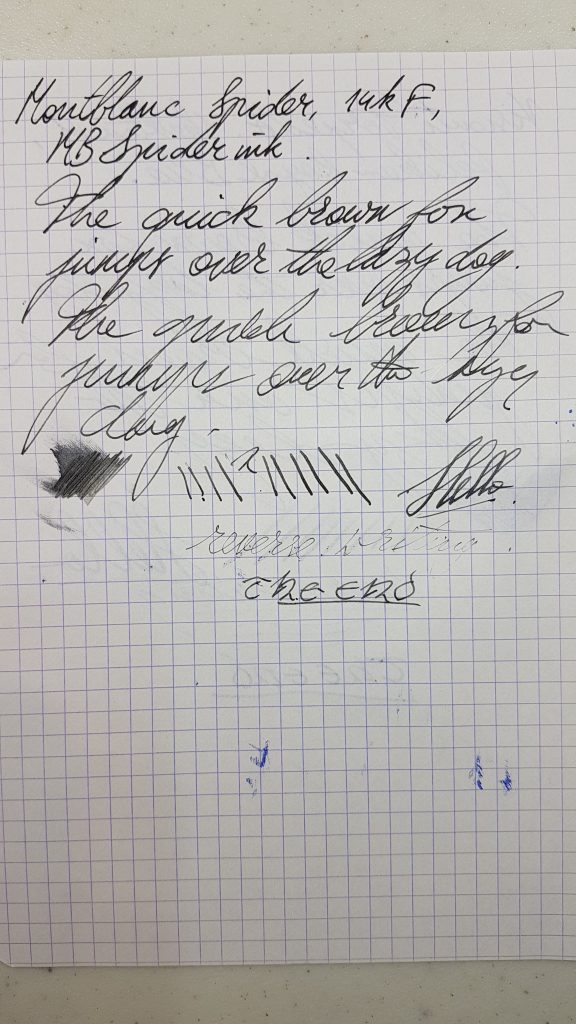 Montblanc Spider, 14k F,
MB Spider ink.
The quick brown fox
jumps over the lazy dog.
The quick brown fox
jumps over the lazy
dog.
Hello.
reverse writing.
THE END